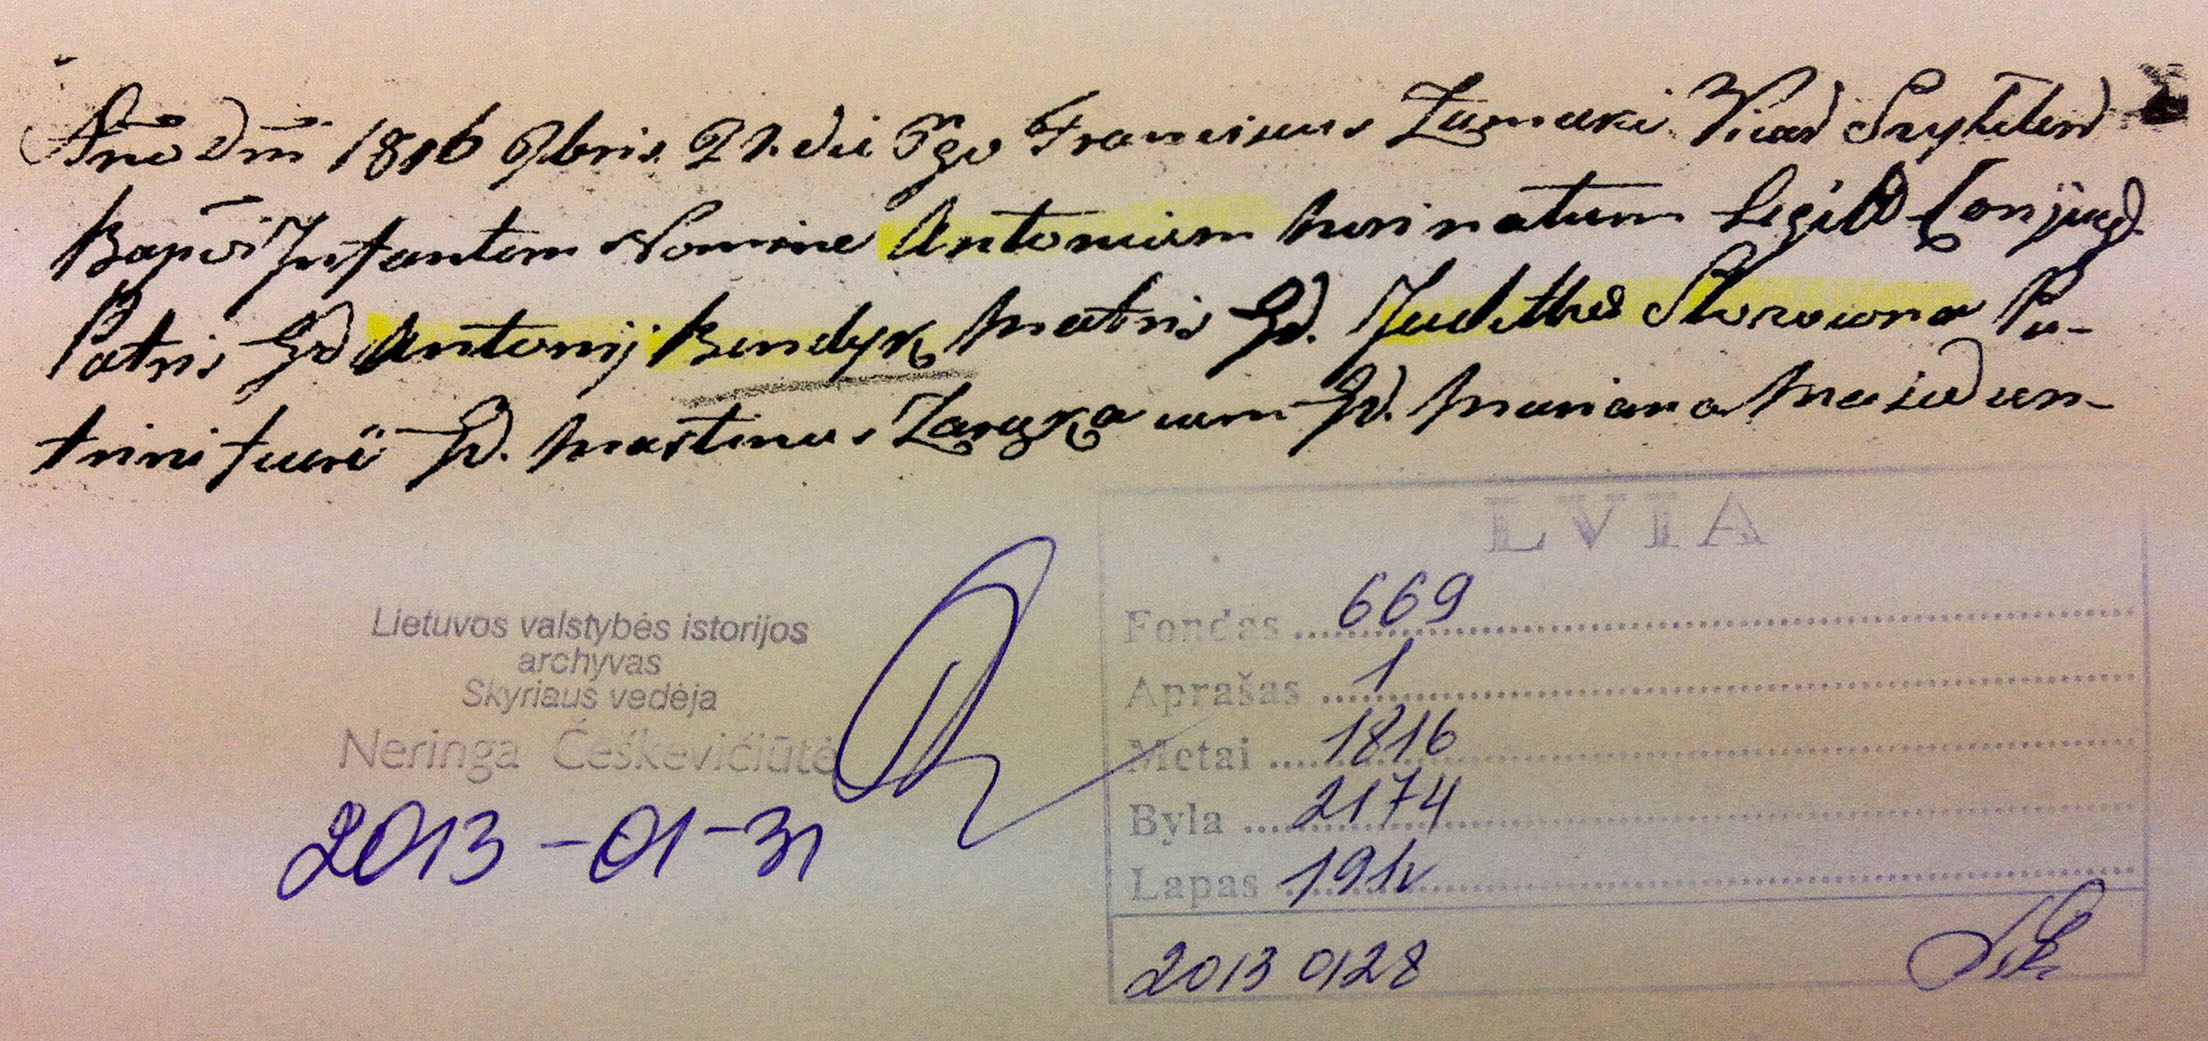 Año Dni 1816 9bris 21. die Ego Franciscus Vicar
Bapvi Infantem Nomine Antonium heri natum Legit Conjug
Patris Gd Antonij Bendyk Matris Gd. Judithae Storowna Pa-
trini fueri Gd. Martinus cum Gd. Mariana
LVIA
Fondas 669
Aprašas 1
Metai 1816
Byla 2174
Lapas 19
2013 0128
Lietuvos valstybės istorijos
archyvas
Skyriaus vedėja
Neringa Češkevičiūtė
2013-01-31